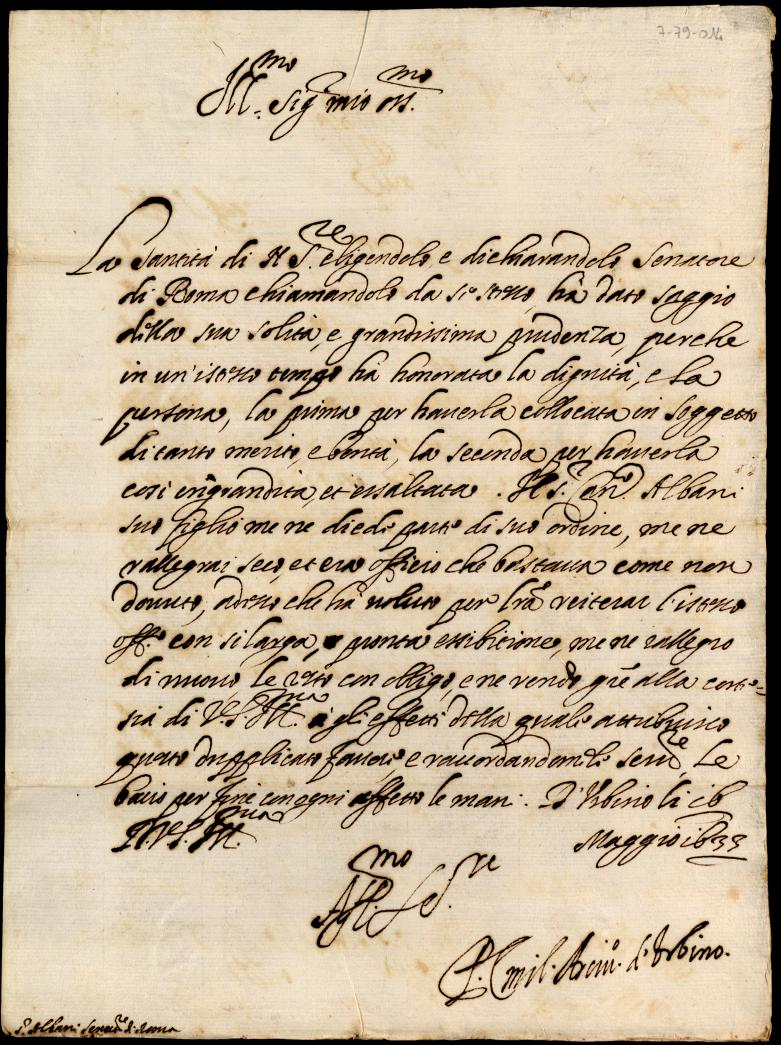 7-79-014
Ill.mo Sig.r mio oss.mo
La Santità di N S.re eligendolo, e dichiarandolo Senatore
di Roma chiamandolo da se stesso, hà dato saggio
della sua solita, e grandissima prudenza, perche
in un'istesso tempo hà honorata la dignità, e la
persona, la prima per hauerla collocata in soggetto
di tanto merito, e bontà, la seconda per hauerla
cosi ingrandita, et essaltata. Il S.r Can.o Albani
suo figlio me ne diede parte di suo ordine, me ne
rallegrai seco, et era officio che bastaua come non
douuto, adesso che hà voluto per lrã reiterar l'istesso
off.o con si larga, e pronta essibitione, me ne rallegro
di nuouo, le resto con obligo, e ne rendo grẽ alla corte=
sia di V.S. Ill.ma à gli effetti della quale attribuisco
questo dupplicato fauore e raccordandomele seru.re Le
bacio per fine con ogni affetto le mani. D'Urbino li 16
Maggio 1633
D. V.S. Ill.ma
Aff.mo Se.re
P. Emil. Arciu.o d'Urbino.
S. Albani Senat.re di Roma